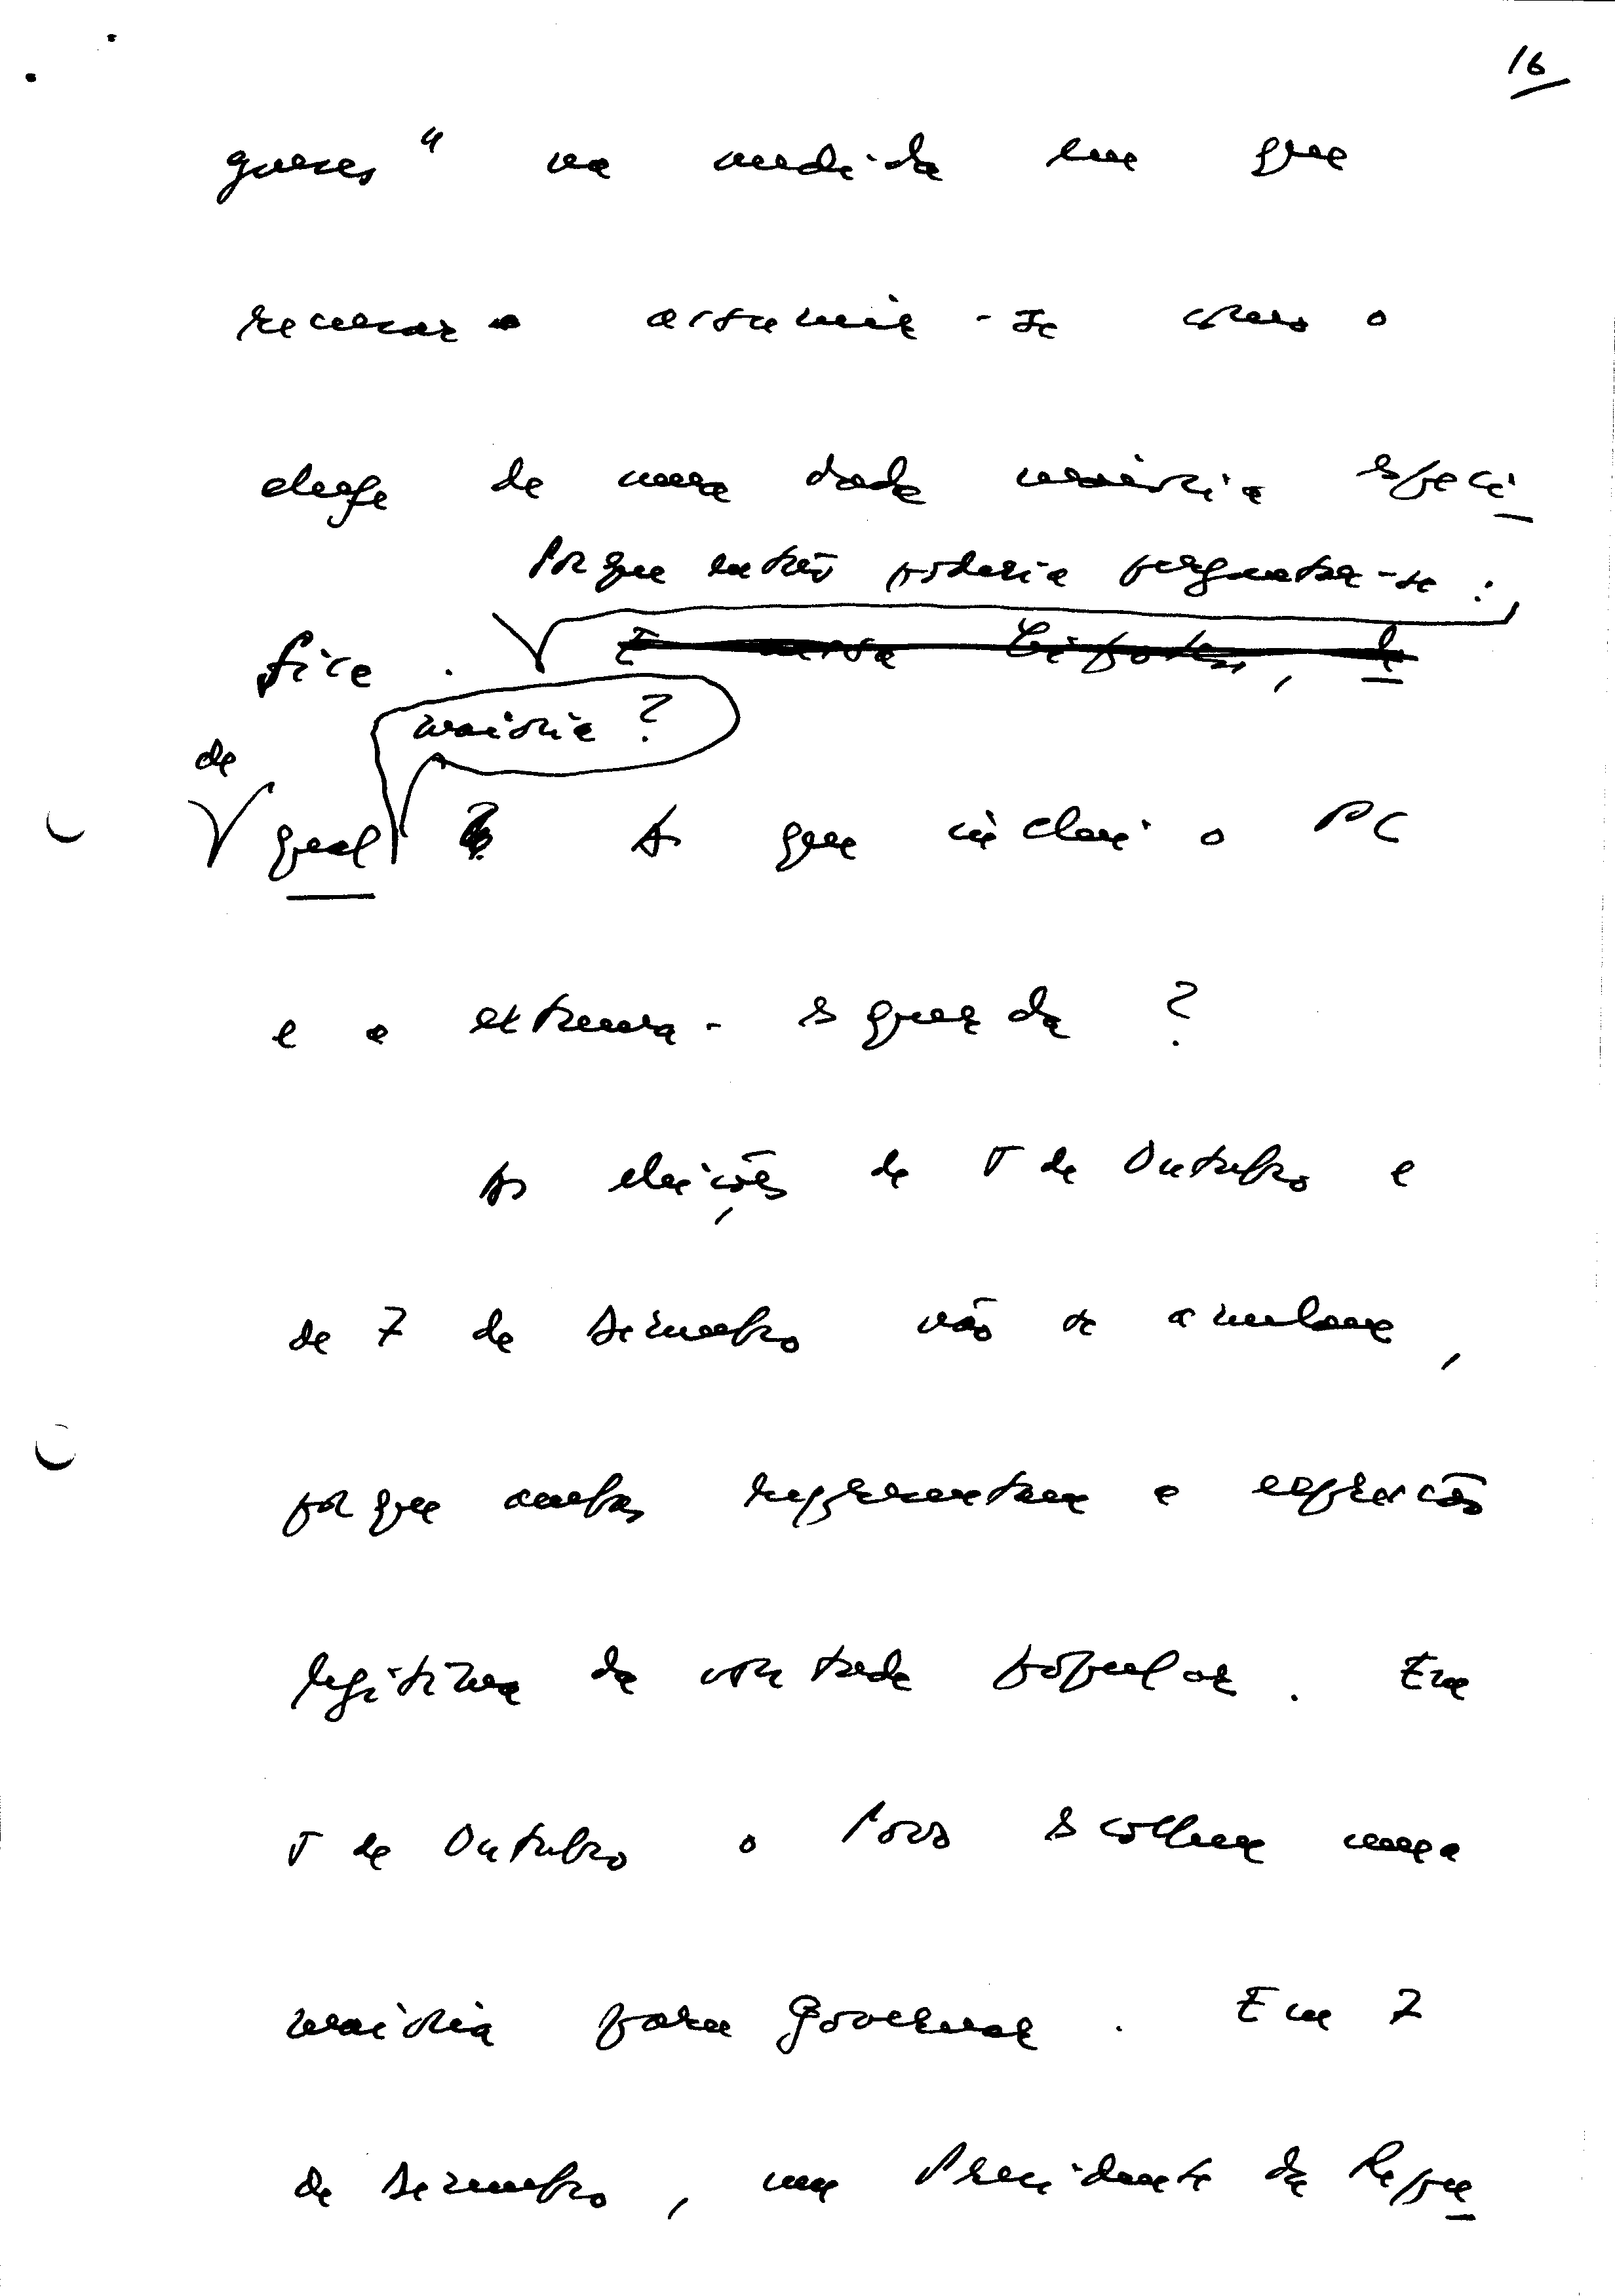 16
gueses" na medida em que
recusar assumir-se como o
chefe de uma dada maioria especí
Porque então poderia perguntar-se:
fica.
maioria?
de
qual A que inclui o PC
e a extrema-esquerda?
As eleições de 5 de Outubro e
de 7 de Dezembro não se anulam,
porque ambas representam a expressão
legítima da vontade popular. Em
5 de Outubro o Povo escolheu uma
maioria para governar. Em 7
de Dezembro, um Presidente da Repú